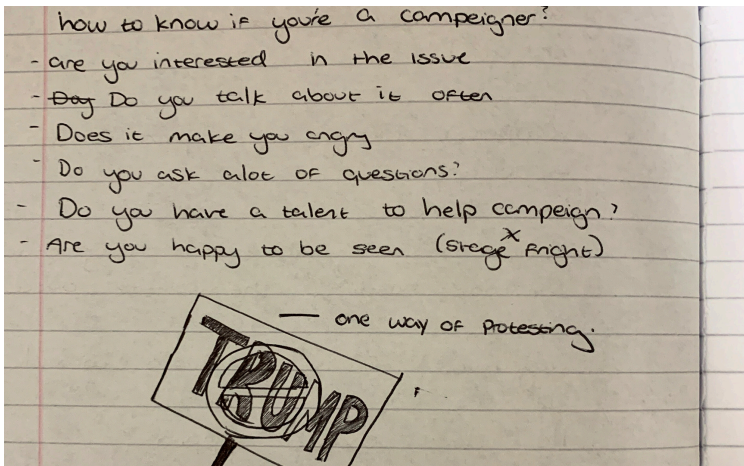 how to know if you're a campaigner?
- are you interested in the issue
- Day Do you talk about it often
- Does it make you angry
- Do you ask alot of questions?
- Do you have a talent to help campaign?
- Are you happy to be seen (stage x fright)
— one way of protesting.
TRUMP